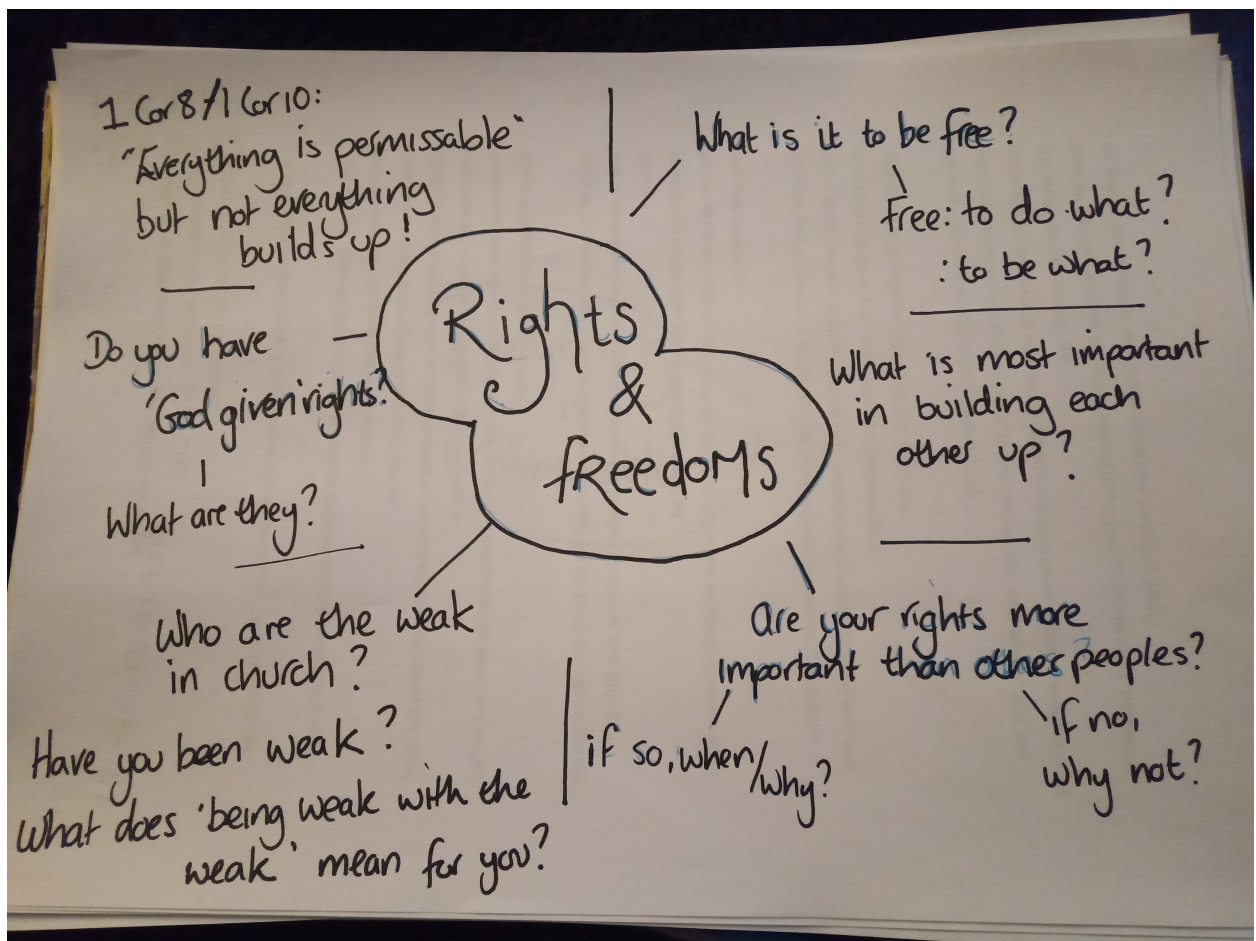 1 Cor 8 / 1 Cor 10:
"Everything is permissable"
but not everything
builds up!
What is it to be free?
free: to do what?
: to be what?
Rights
&
freedoms
Do you have
'God given' rights?
What are they?
What is most important
in building each
other up?
Who are the weak
in church?
Have you been weak?
What does 'being weak with the
weak' mean for you?
are your rights more
important than other peoples?
if so, when/why?
if no,
why not?